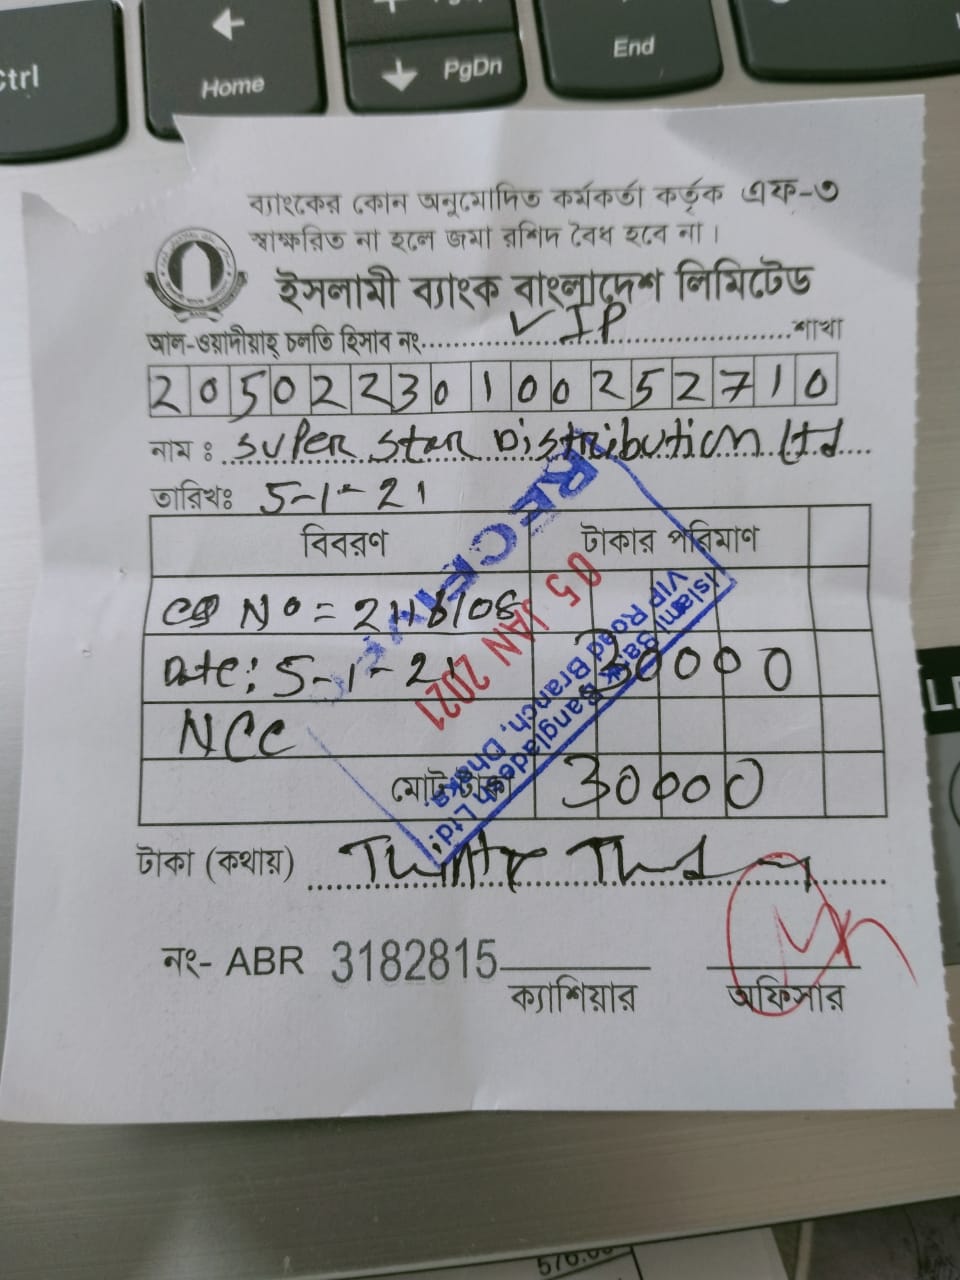 Ctrl
Home
PgDn
End
ব্যাংকের কোন অনুমোদিত কর্মকর্তা কর্তৃক এফ-৩
স্বাক্ষরিত না হলে জমা রশিদ বৈধ হবে না।
ইসলামী ব্যাংক বাংলাদেশ লিমিটেড
আল-ওয়াদীয়াহ্ চলতি হিসাব নং.....VIP.....শাখা
20502230100252710
নাম : Super Star Distribution Ltd
তারিখঃ 5-1-21
বিবরণ টাকার পরিমাণ
No = 2116108
Date: 5-1-21 30000
NCC
মোট টাকা 30000
RECEIVE
05 JAN 2021
Islami Bank Bangladesh Ltd.
VIP Road Branch, Dhaka
টাকা (কথায়)
নং- ABR 3182815
ক্যাশিয়ার অফিসার
570.00